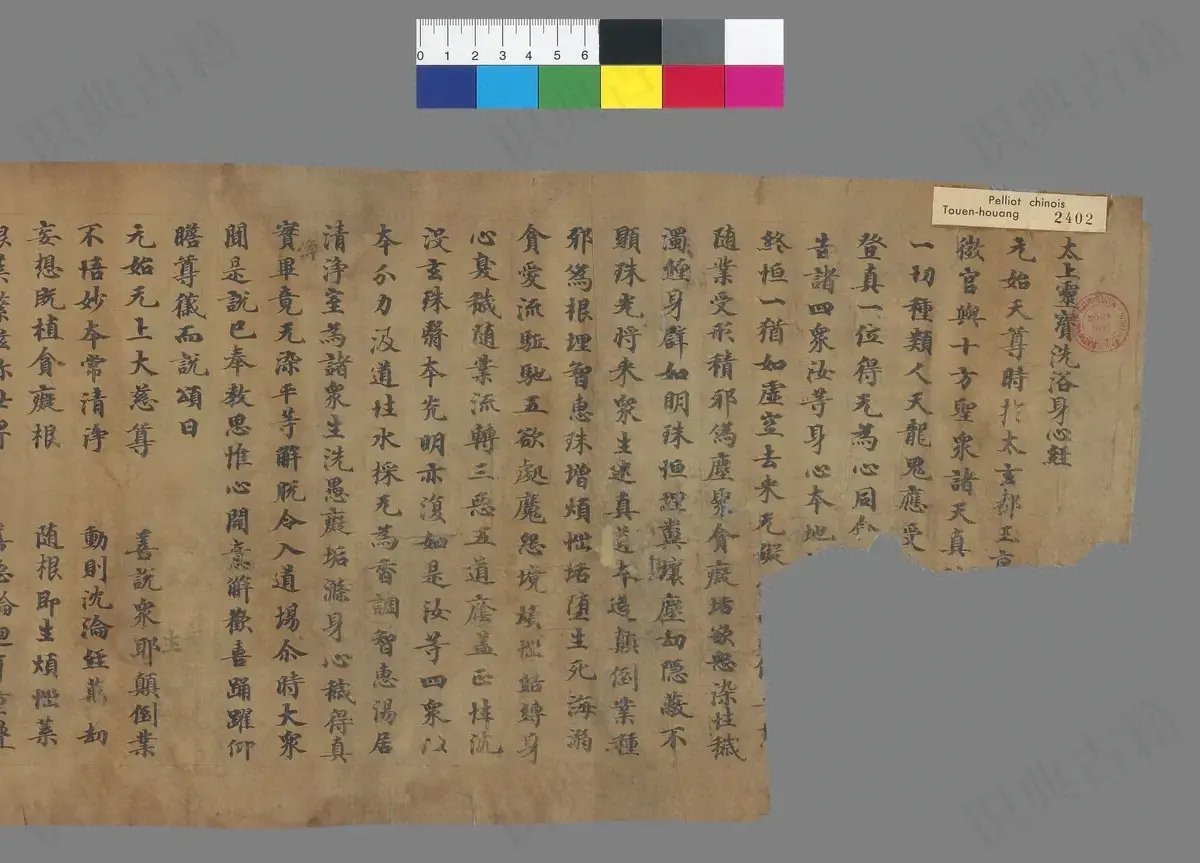 0 1 2 3 4 5 6
Pelliot chinois
Touen-houang 2402
太上靈寶洗浴身心經
元始天尊時於太玄都玉京
徵官與十方聖衆諸天真
一切種類人天龍鬼應受
登真一位得无為心同
告諸四衆汝等身心本地
終恒一猶如虛空去来无礙
随業受形積邪為塵聚貪癡垢欲愁染性穢
濁纏身群如明珠恒埋糞壤塵劫隱蔽不
顯珠光將来衆生迷真道本造顛倒業種
邪為根埋智惠珠增煩惱垢墮生死海溺
貪愛流駈馳五欲處魔怨境煩惱結縛身
心受穢随業流轉三惡五道癊盖正性沉
没玄珠翳本光明亦復如是汝等四衆以
本分力汲道性水採无為香調智惠湯居
清浄室為諸衆生洗愚癡垢滌身心穢得真
實畢竟无染平等解脫令入道場尒時大衆
聞是説已奉教思惟心開意解歡喜踊躍仰
瞻尊儀而説頌曰
元始无上大慈尊 善説衆耶顛倒業
不悟妙本常清浄 動則沈淪經萬劫
妄想既植貪癡根 随根即生煩惱葉